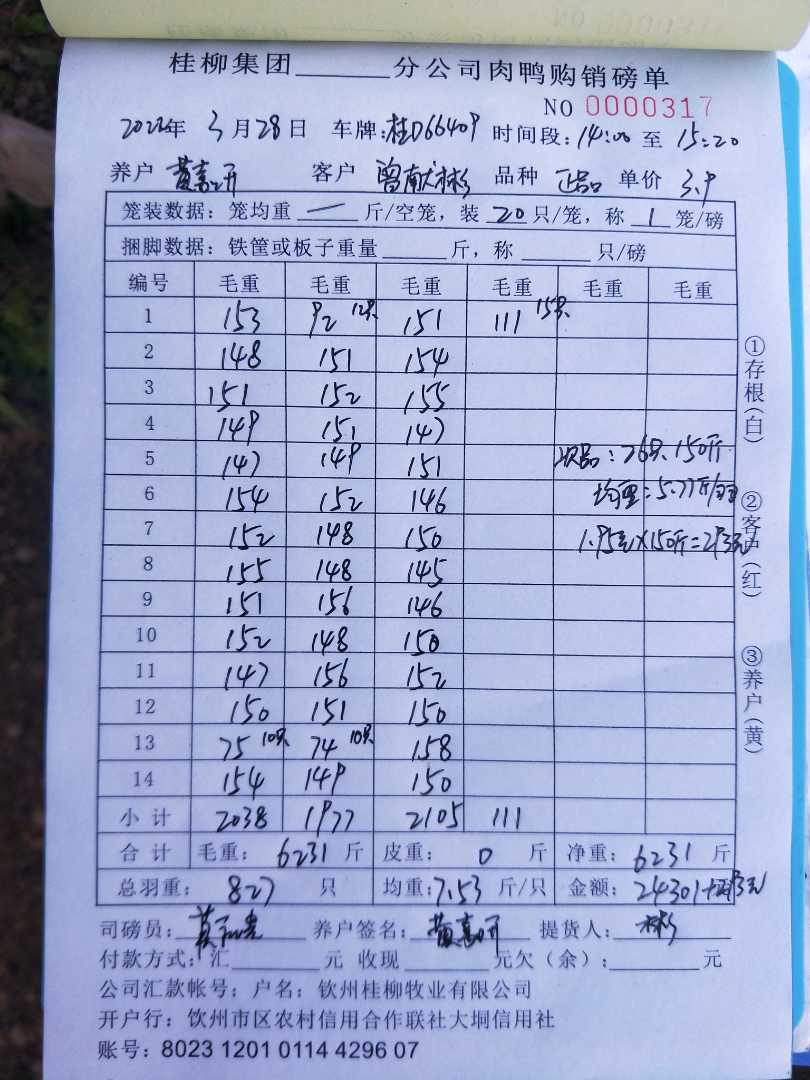 桂柳集团______分公司肉鸭购销磅单
NO 0000317
2022年 3月28日 车牌:桂D66409 时间段:14:00 至 15:20
养户 客户 曾献彬 品种 正品 单价 3.9
笼装数据:笼均重 一 斤/空笼,装 20 只/笼,称 1 笼/磅
捆脚数据:铁筐或板子重量______斤,称______只/磅
编号 毛重 毛重 毛重 毛重 毛重 毛重
1 153 92 12只 151 111 15只
2 148 151 154
3 151 152 155
4 149 151 147
5 147 149 151 次品:26只 150斤
6 154 152 146 均重:5.77斤/羽
7 152 148 150 1.95元×150斤=293元
8 155 148 145
9 151 156 146
10 152 148 150
11 147 156 152
12 150 151 150
13 75 10只 74 10只 158
14 154 149 150
小计 2038 1977 2105 111
合计 毛重: 6231 斤 皮重: 0 斤 净重: 6231 斤
总羽重: 827 只 均重:7.53 斤/只 金额: 24301+293元
司磅员: 养户签名: 提货人: 彬
付款方式:汇______元 收现______元欠(余):______元
公司汇款帐号;户名;钦州桂柳牧业有限公司
开户行:钦州市区农村信用合作联社大垌信用社
账号:8023 1201 0114 4296 07
①存根(白)
②客户(红)
③养户(黄)